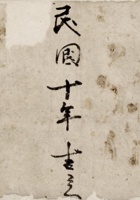 民國十年吉立